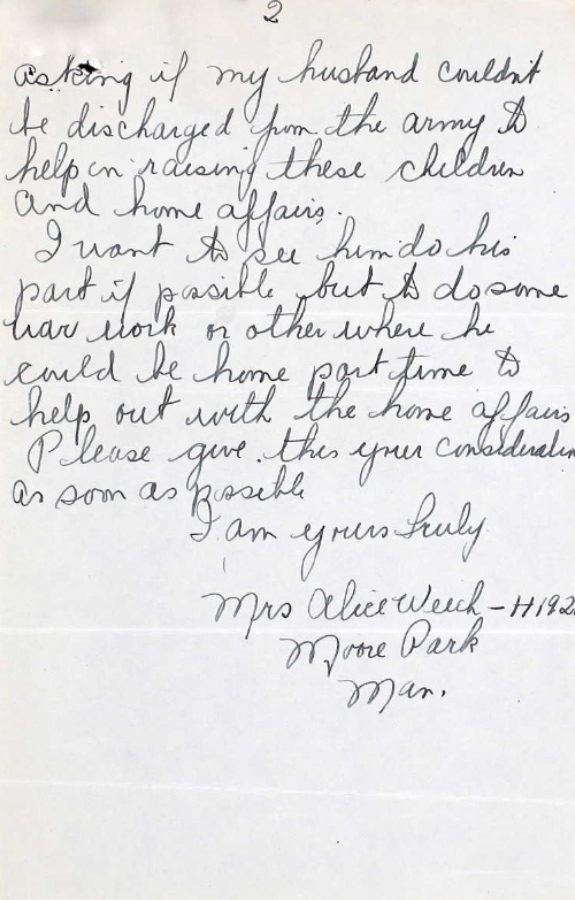 2
asking if my husband couldn't
be discharged from the army to
help in raising these children
and home affairs.
I want to see him do his
part if possible but to do some
war work or other where he
could be home part time to
help out with the home affairs
Please give this your consideration
as soon as possible
I am yours truly
Mrs Alice Weech - H192
Moore Park
Man.